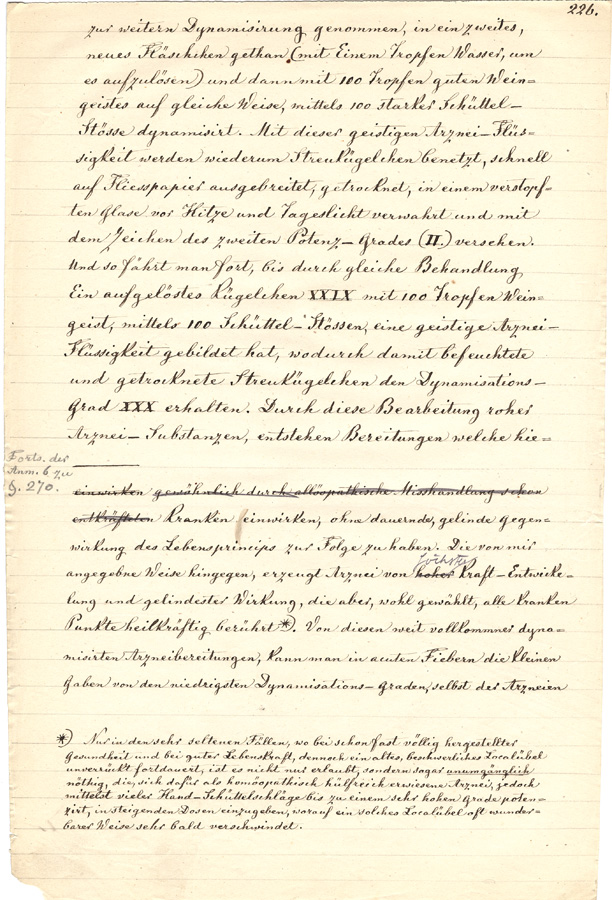 226.
zur weitern Dynamisirung genommen, in ein zweites,
neues Fläschchen gethan (mit Einem Tropfen Wasser, um
es aufzulösen) und dann mit 100 Tropfen guten Wein=
geistes auf gleiche Weise, mittels 100 starker Schüttel-
Stösse dynamisirt. Mit dieser geistigen Arznei-Flüs=
sigkeit werden wiederum Streukügelchen benetzt, schnell
auf Fliesspapier ausgebreitet, getrocknet, in einem verstopf=
ten Glase vor Hitze und Tageslicht verwahrt und mit
dem Zeichen des zweiten Potenz-Grades (II.) versehen.
Und so fährt man fort, bis durch gleiche Behandlung
Ein aufgelöstes Kügelchen XXIX mit 100 Tropfen Wein=
geist, mittels 100 Schüttel-Stössen, eine geistige Arznei-
Flüssigkeit gebildet hat, wodurch damit befeuchtete
und getrocknete Streukügelchen den Dynamisations-
Grad XXX erhalten. Durch diese Bearbeitung roher
Arznei-Substanzen, entstehen Bereitungen welche hie=
Forts. der
Anm. 6 zu
§. 270.
einwirken gewöhnlich durch allöopathische Misshandlung schon
entkräfteten Kranken einwirken, ohne dauernde, gelinde Gegen=
wirkung des Lebensprincips zur Folge zu haben. Die von mir
höchster
angegebne Weise hingegen, erzeugt Arznei von hoher Kraft-Entwicke=
lung und gelindester Wirkung, die aber, wohl gewählt, alle kranken
Punkte heilkräftig berührt *). Von diesen weit vollkommner dyna=
misirten Arzneibereitungen, kann man in acuten Fiebern die kleinen
Gaben von den niedrigsten Dynamisations-Graden, selbst der Arzneien
*) Nur in den sehr seltenen Fällen, wo bei schon fast völlig hergestellter
Gesundheit und bei guter Lebenskraft, dennoch ein altes, beschwerliches Localübel
unverrückt fortdauert, ist es nicht nur erlaubt, sondern sogar unumgänglich
nöthig, die, sich dafür als homöopathisch hülfreich erwiesene Arznei, jedoch
mittelst vieler Hand-Schüttelschläge bis zu einem sehr hohen Grade poten=
zirt, in steigenden Dosen einzugeben, worauf ein solches Localübel oft wunder=
barer Weise sehr bald verschwindet.